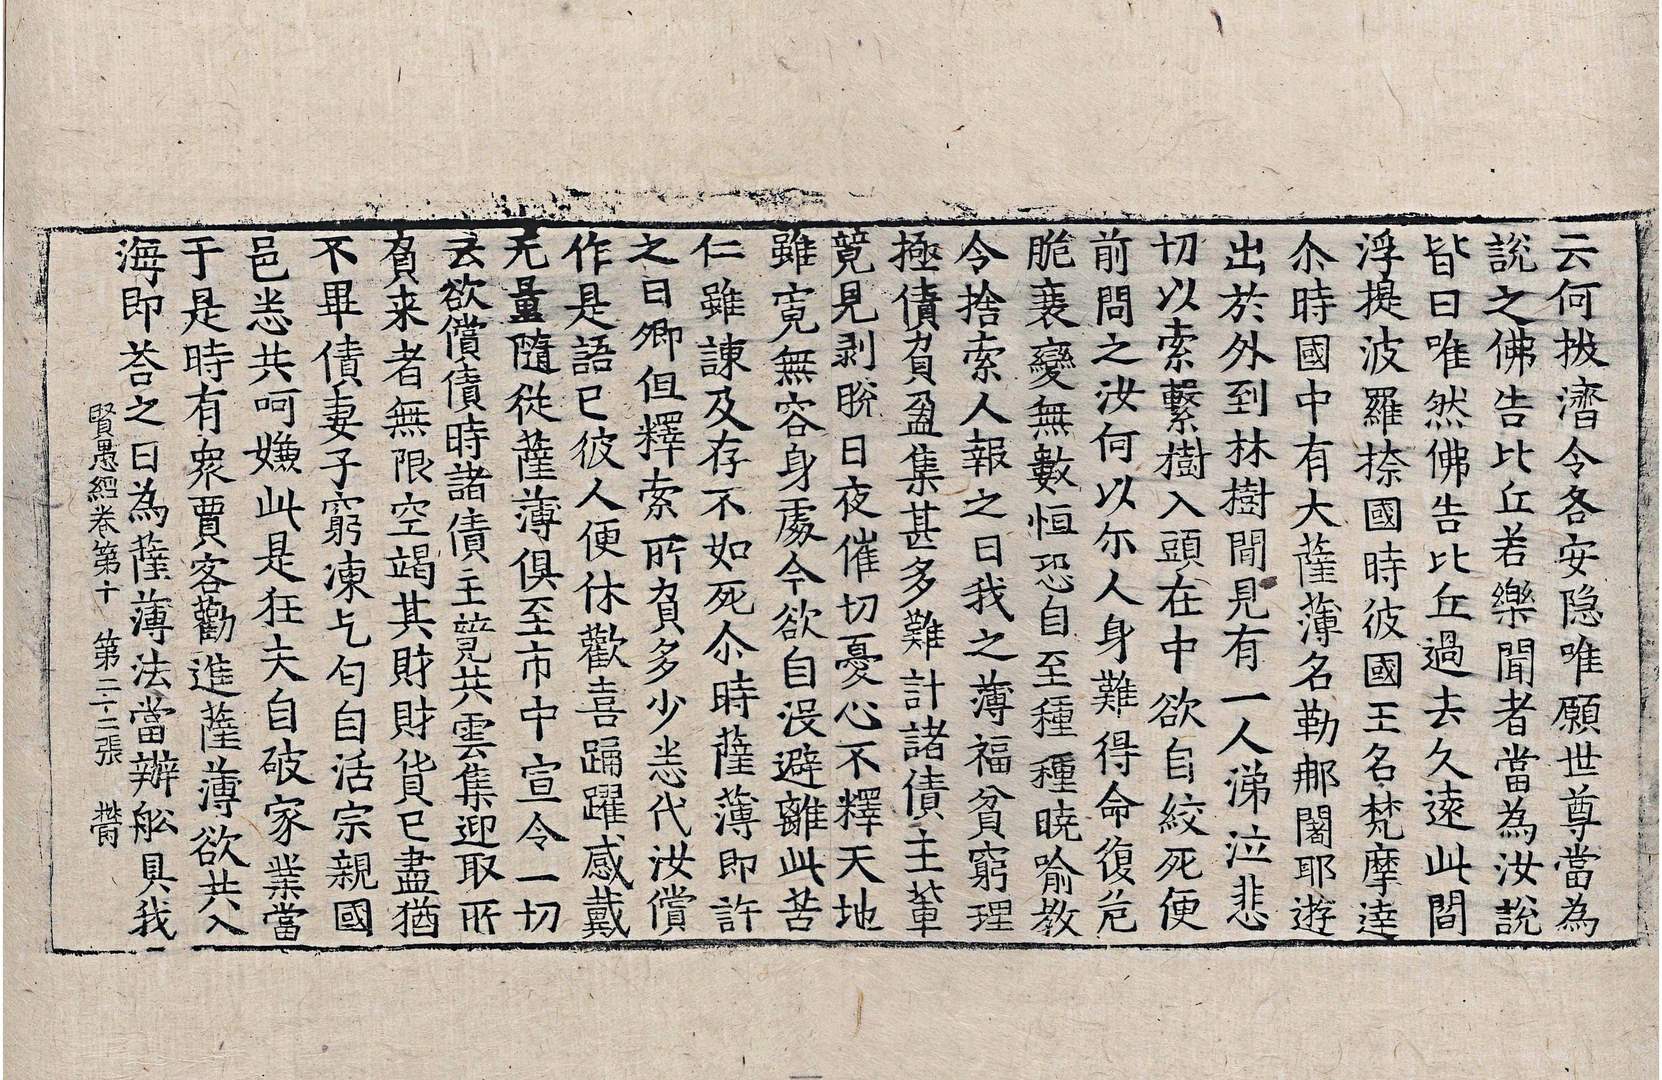 云何拔濟令各安隐唯願世尊當為
説之佛告比丘若樂聞者當為汝説
皆曰唯然佛告比丘過去久遠此閻
浮提波羅㮈國時彼國王名梵摩達
尒時國中有大薩薄名勒那闍耶遊
出於外到林樹間見有一人涕泣悲
切以索繫樹入頭在中欲自絞死便
前問之汝何以尓人身難得命復危
脆衰變無數恒恐自至種種曉喻教
令捨索人報之曰我之薄福貧窮理
極債負盈集甚多難計諸債主輩
競見剥脫日夜催切憂心不釋天地
雖寬無容身處今欲自没避離此苦
仁雖諫及存不如死尒時薩薄即許
之曰卿但釋索所負多少悉代汝償
作是語已彼人便休歡喜踊躍感戴
无量隨從薩薄俱至市中宣令一切
云欲償債時諸債主競共雲集迎取所
負来者無限空竭其財財貨已盡猶
不畢債妻子窮凍乞匂自活宗親國
邑悉共呵嫌此是狂夫自破家業當
于是時有衆賈客勸進薩薄欲共入
海即荅之曰為薩薄法當辦舩具我
賢愚經卷第十 第二十二張